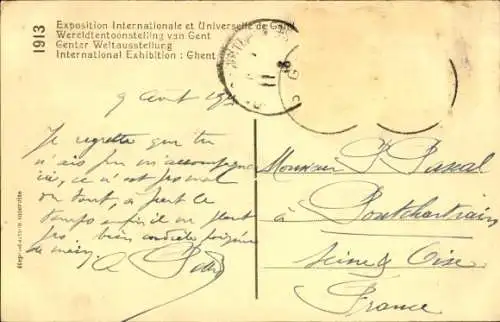 1913
Exposition Internationale et Universelle de Gand
Wereldtentoonstelling van Gent
Genter Weltausstellung
International Exhibition : Ghent
9 Août 191
Je regrette que tu
n'ais pu m'accompagner
ici, ce n'est pas mal
du tout, à part le
temps enfin, il ne pleut
pas
à
Monsieur P. Pascal
à
Pontchartrain
Seine & Oise
France
Reproduction interdite